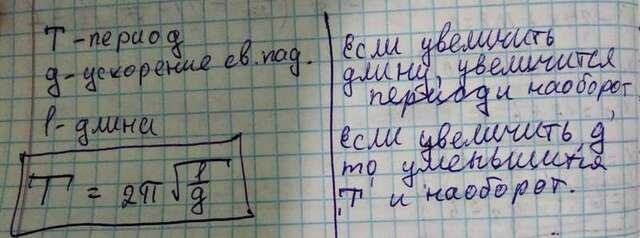 T - период
g - ускорение св. пад.
l - длина
T = 2π√l/g
Если увеличить
длину, увеличится
период и наоборот
Если увеличить g,
то уменьшится
T и наоборот.